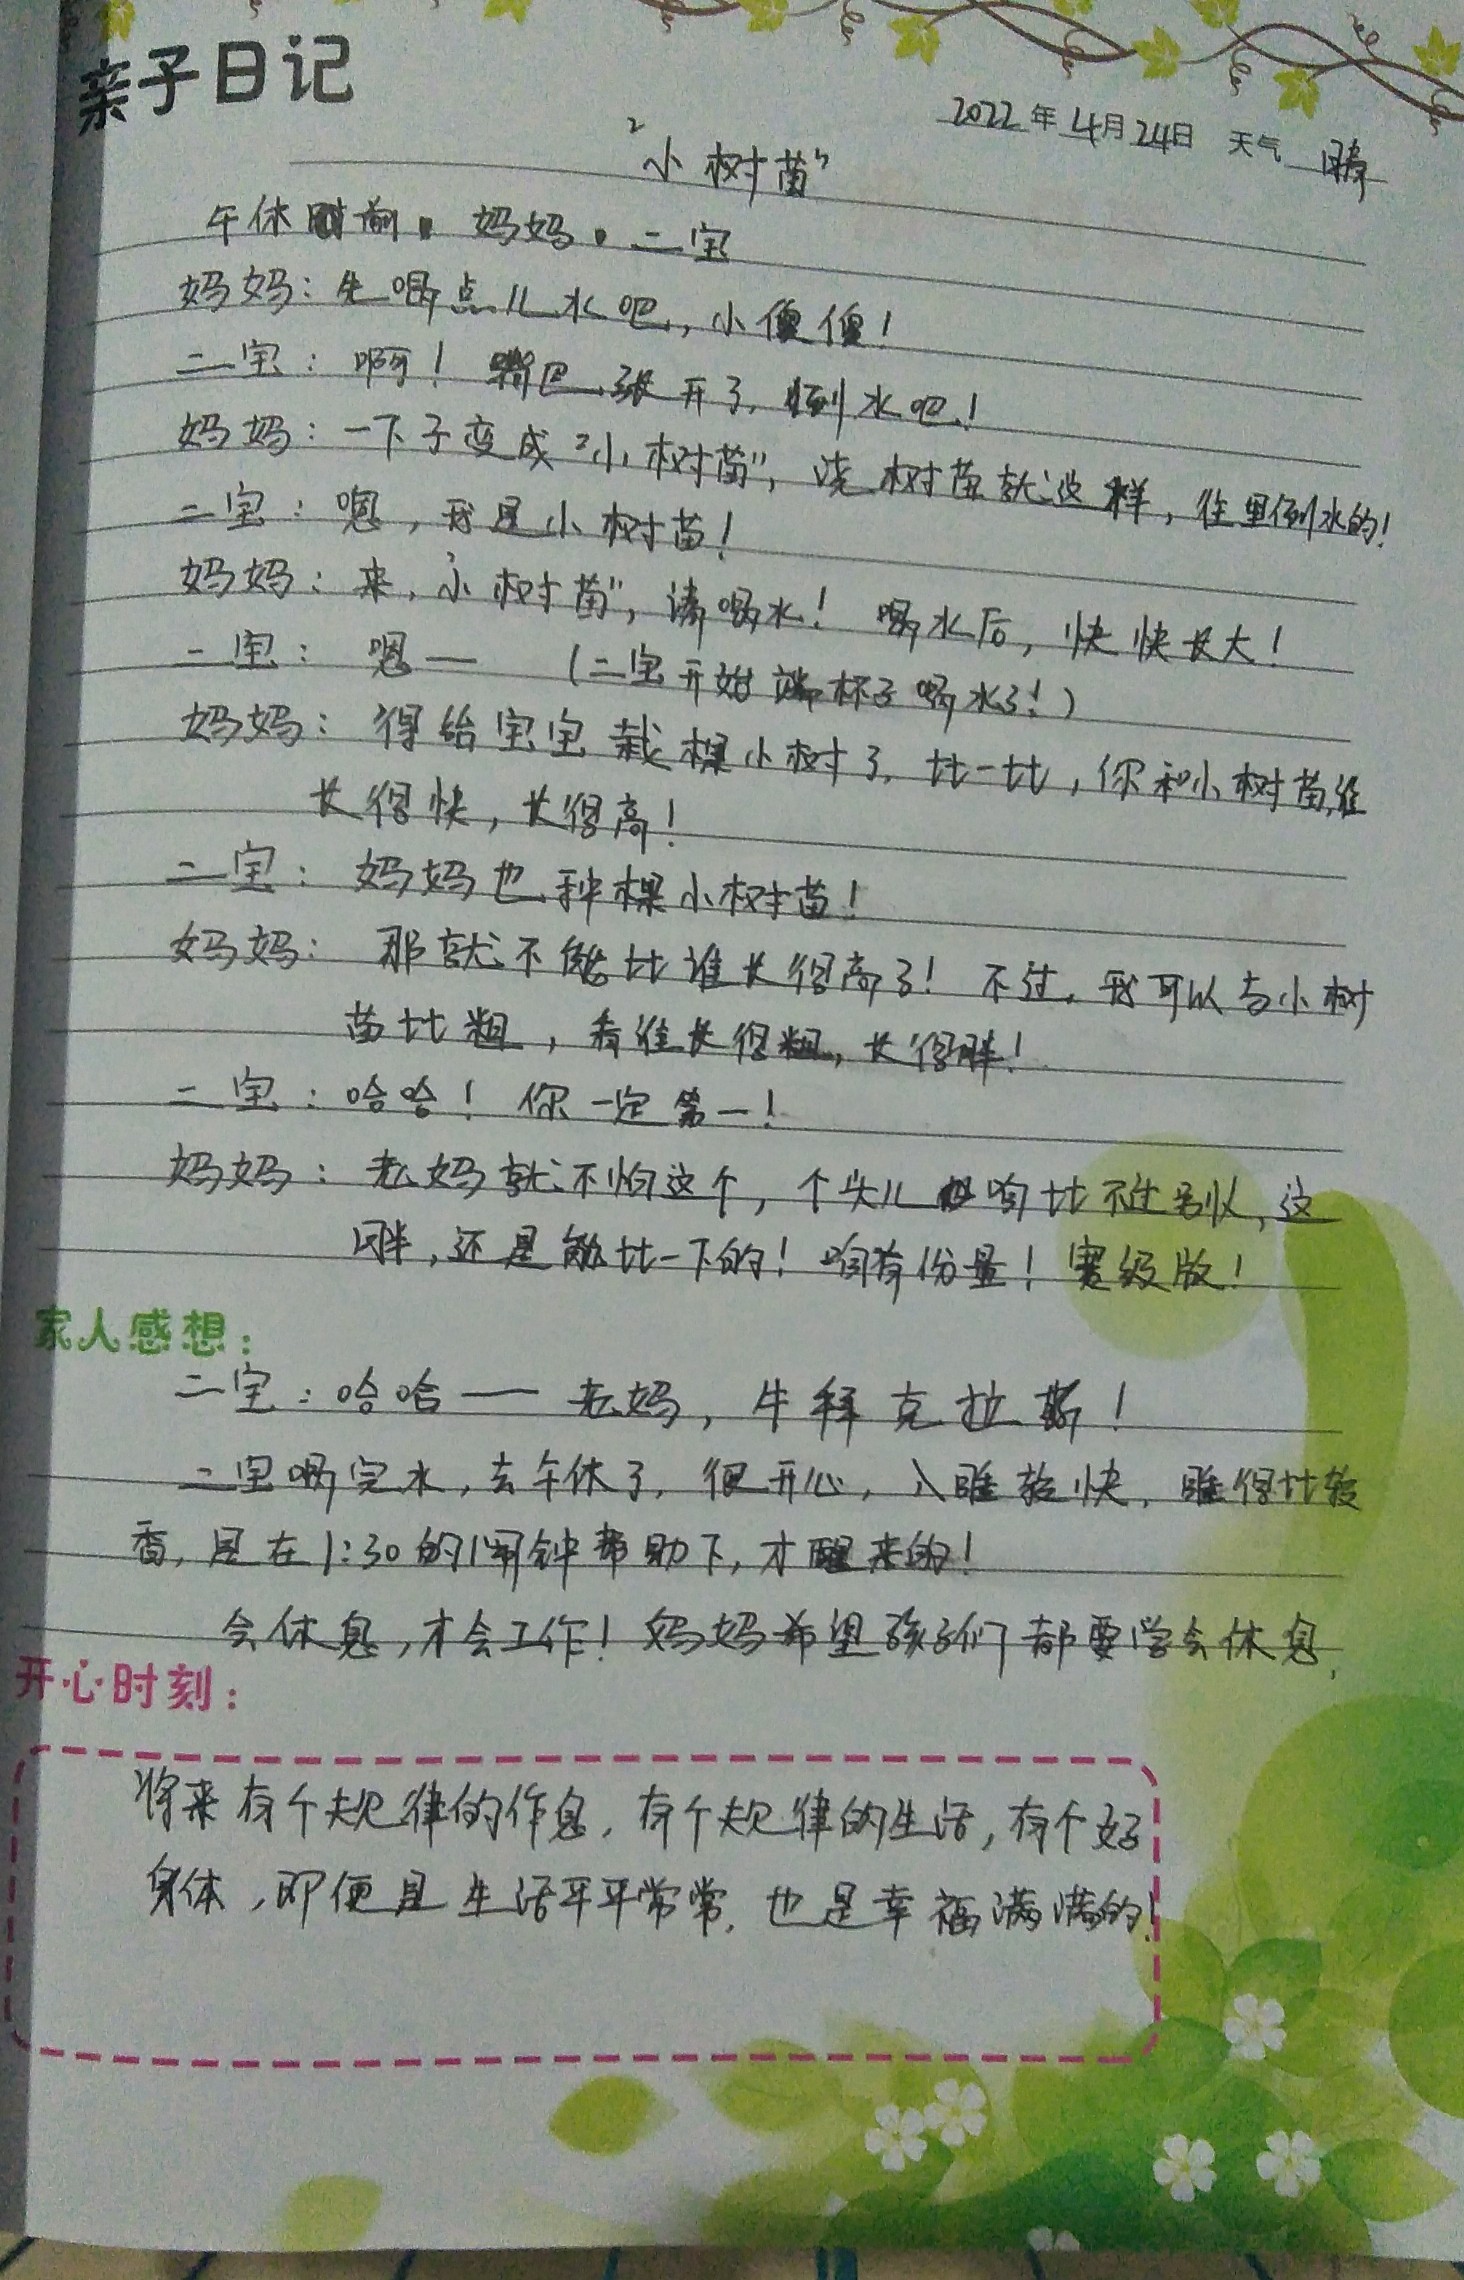 亲子日记
2022年4月24日 天气 晴
“小树苗”
午休时前。妈妈。二宝
妈妈：先喝点儿水吧，小傻傻！
二宝：啊！嘴巴张开了，倒水吧！
妈妈：一下子变成“小树苗”，浇树苗就这样，往里倒水的！
二宝：嗯，我是小树苗！
妈妈：来，“小树苗”，请喝水！喝水后，快快长大！
二宝：嗯— （二宝开始端杯子喝水了！）
妈妈：得给宝宝栽棵小树了，比一比，你和小树苗，谁
长得快，长得高！
二宝：妈妈也种棵小树苗！
妈妈：那就不能比谁长得高了！不过，我可以与小树
苗比粗，看谁长得粗，长得胖！
二宝：哈哈！你一定第一！
妈妈：老妈就不怕这个，个头儿咱比不过别人，这
胖，还是能比一下的！咱有份量！ 级版！
家人感想：
二宝：哈哈—— 老妈，牛拜克拉斯！
二宝喝完水，去午休了，很开心，入睡较快，睡得比较
香，是在1:30的闹钟帮助下，才醒来的！
会休息，才会工作！妈妈希望孩子们都要学会休息，
开心时刻：
将来有个规律的作息，有个规律的生活，有个好
身体，即便是生活平平常常，也是幸福满满的！